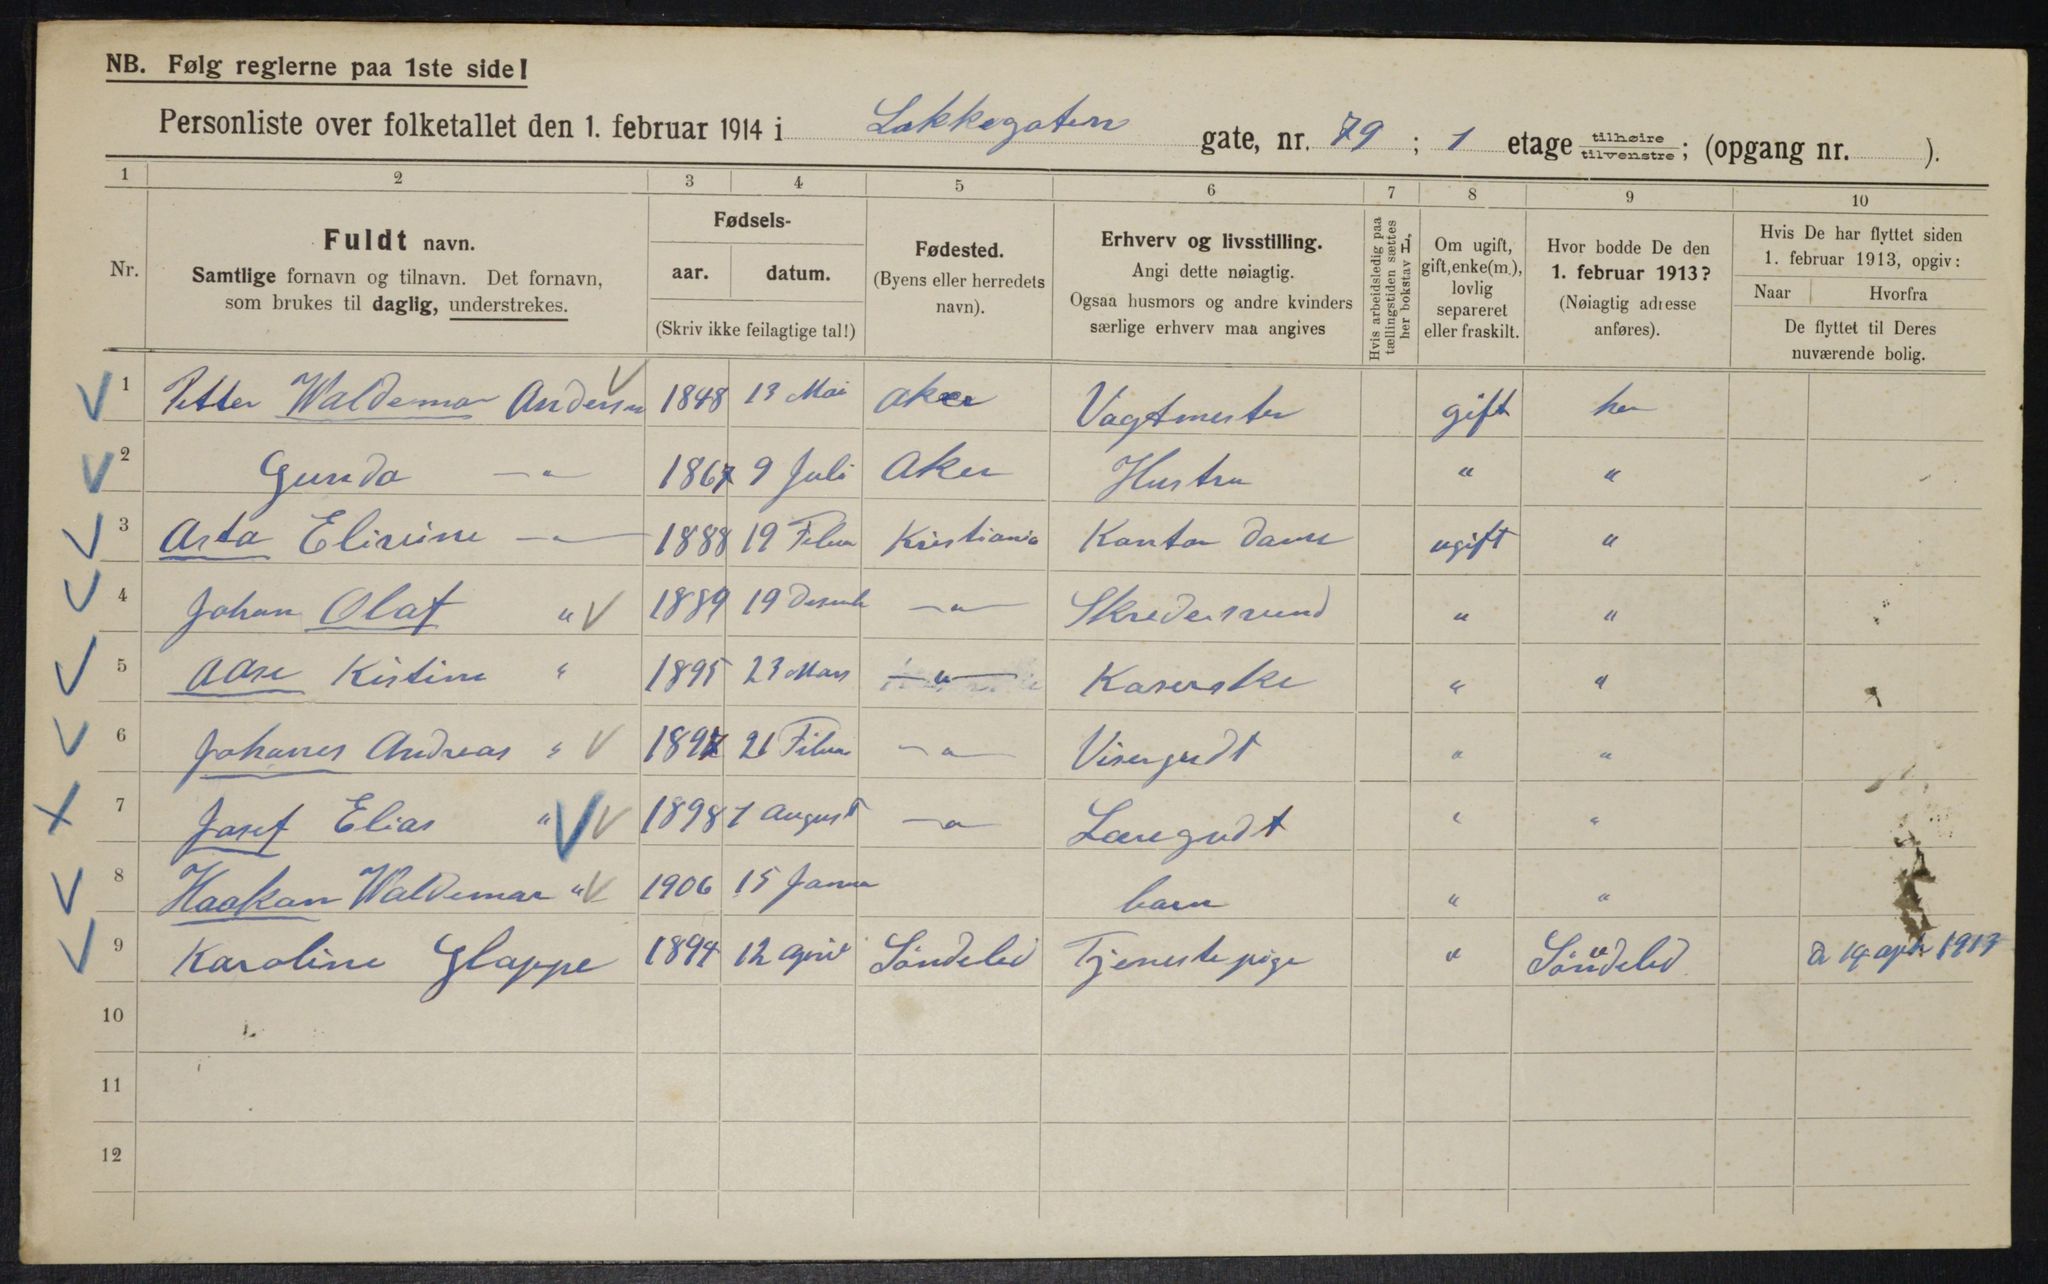 NB. Følg reglerne paa 1ste side!
Personliste over folketallet den 1. februar 1914 i Lakkegaten gate, nr. 79 ; 1 etage tilhøire tilvenstre; (opgang nr. ).
1 2 3 4 5 6 7 8 9 10
Nr.
Fuldt navn.
Samtlige fornavn og tilnavn. Det fornavn,
som brukes til daglig, understrekes.
Fødsels-
aar. datum.
(Skriv ikke feilagtige tal!)
Fødested.
(Byens eller herredets
navn).
Erhverv og livsstilling.
Angi dette nøiagtig.
Ogsaa husmors og andre kvinders
særlige erhverv maa angives
Hvis arbeidsledig paa
tællingstiden sættes
her bokstav L,
Om ugift,
gift, enke(m.),
lovlig
separeret
eller fraskilt.
Hvor bodde De den
1. februar 1913?
(Nøiagtig adresse
anføres).
Hvis De har flyttet siden
1. februar 1913, opgiv:
Naar Hvorfra
De flyttet til Deres
nuværende bolig.
1 Petter Waldemar Andersen 1848 13 Mai Aker Vagtmester gift her
2 Gunda —"— 1867 9 Juli Aker Hustru " "
3 Asta Elivine —"— 1888 19 Febru Kristiania Kontor dame ugift "
4 Johan Olaf " 1889 19 Desemb —"— Skredersvend " "
5 Aase Kistine " 1895 23 Mars —"— Kaserske " "
6 Johanes Andreas " 1897 21 Febru —"— Visergudt " "
7 Josef Elias " 1898 7 August —"— Læregudt " "
8 Haakon Waldemar " 1906 15 Janua barn " "
9 Karoline Glappe 1894 12 April Söndeled Tjenestepige " Söndeled d 14 apr 1913
10
11
12